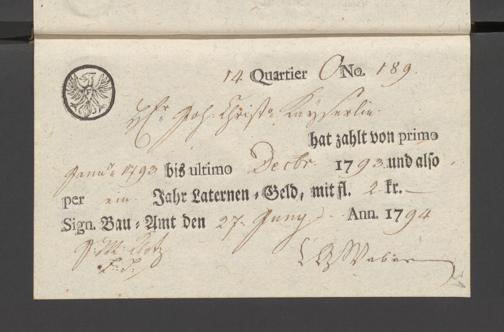 14 Quartier O No. 189.
Hr. Joh. Christ. Kayserlin
hat zahlt von primo
Janua. 1793 bis ultimo Decbr. 1793. und also
per ein Jahr Laternen-Geld, mit fl. 2 kr. —
Sign. Bau-Amt den 27. Juny. Ann. 1794
Weber